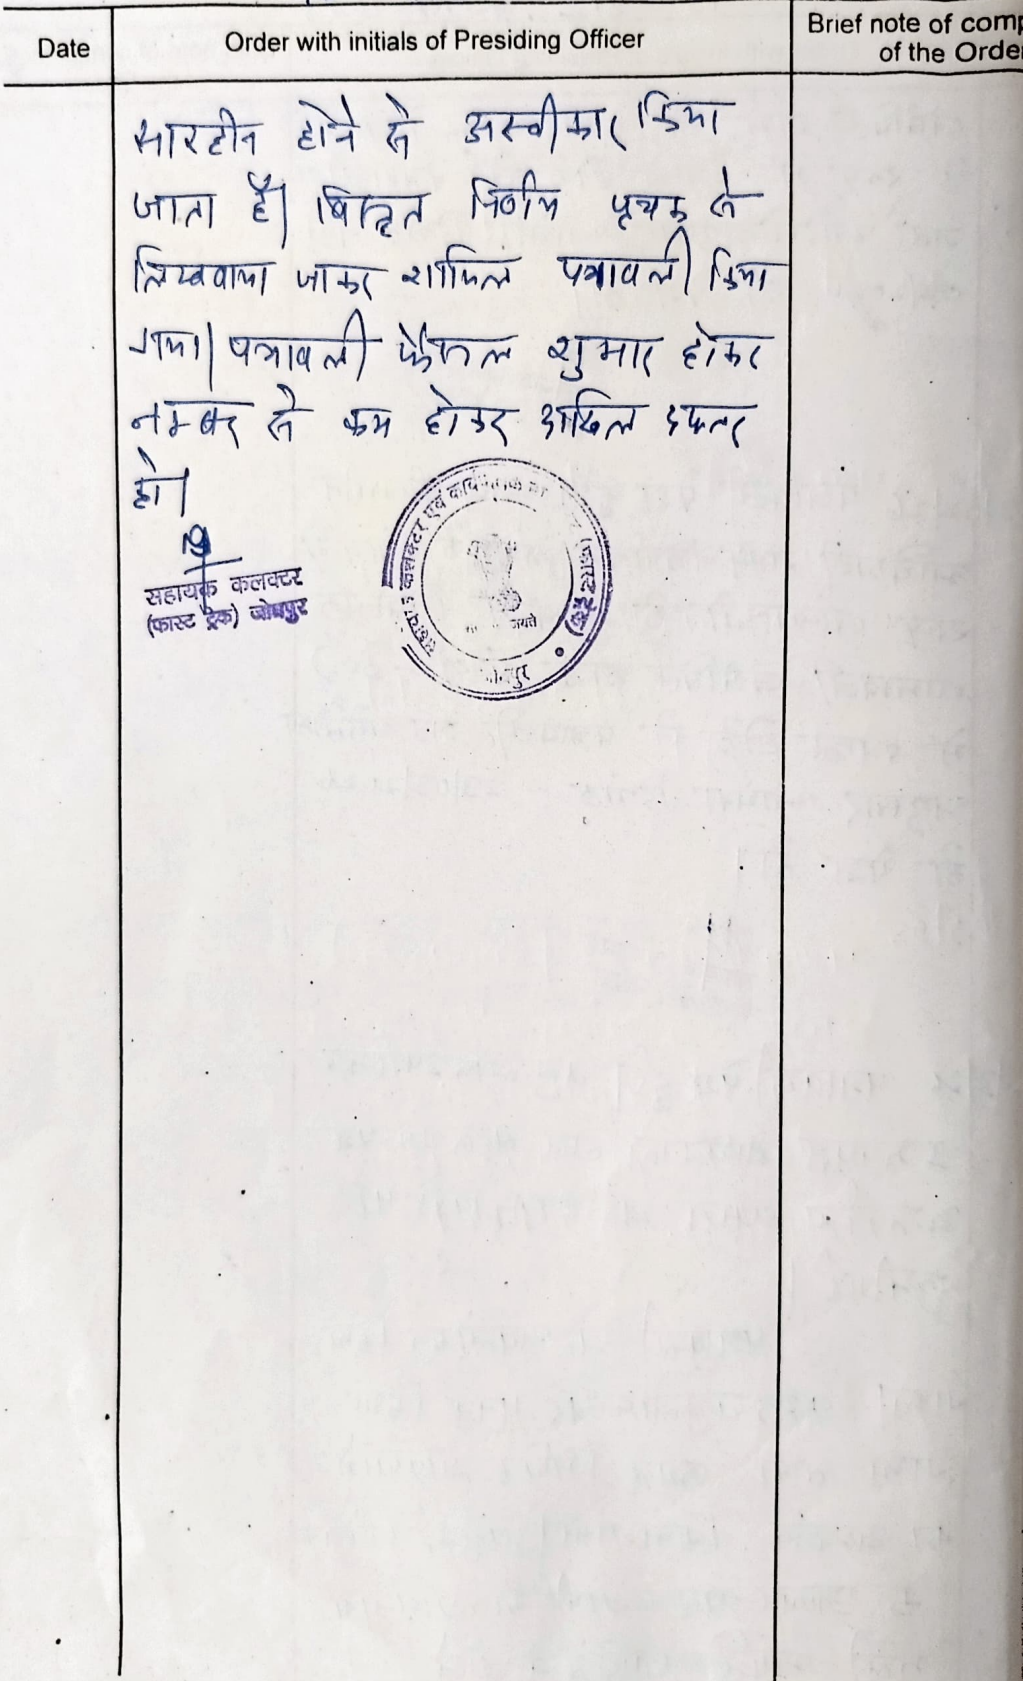 Date
Order with initials of Presiding Officer
Brief note of comp
of the Order
सारहीन होने से अस्वीकार किया
जाता है। विस्तृत निर्णय पृथक से
लिखवाया जाकर शामिल पत्रावली किया
गया। पत्रावली फैसल शुमार होकर
नम्बर से कम होकर दाखिल दफ्तर
हो।
सहायक कलक्टर
(फास्ट ट्रेक) जोधपुर
कलक्टर एवं
(फास्ट ट्रेक)
जयते